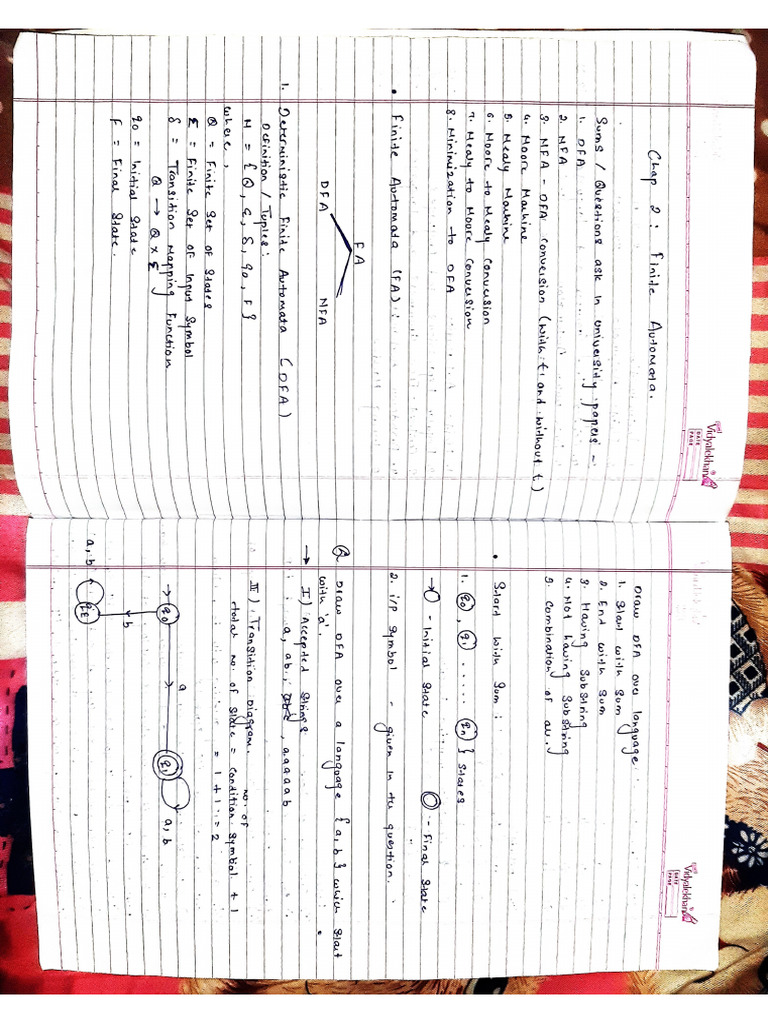 Vidyalekhan
DATE
PAGE
Chap 2 : Finite Automata.
Sums / Questions ask in University papers -
1. DFA
2. NFA
3. NFA - DFA conversion (with ε and without ε)
4. Moore Machine
5. Mealy Machine
6. Moore to Mealy Conversion
7. Mealy to Moore Conversion
8. Minimization to DFA
• Finite Automata (FA) :
FA
DFA NFA
1. Deterministic Finite Automata (DFA)
Definition / Tuples :
M = { Q, Σ, δ, q0, F }
where,
Q = Finite Set of States
Σ = Finite Set of Input Symbol
δ = Transition Mapping Function
Q → Q x Σ }
q0 = Initial State
F = Final State.
Vidyalekhan
DATE
PAGE
Draw DFA over language
1. Start with Sum
2. End with Sum
3. Having Substring
4. Not having Substring
5. Combination of all.
• Start with Sum :
1. q0, q1 ..... qn } States
→ - Initial State - Final State
2. i/p symbol - given in the question.
Q Draw DFA over a language {a, b} which start
with 'a'.
→ I) Accepted Strings
a, ab, , aaaaab
II) Transition Diagram.
total no. of State = no. of condition symbol + 1
= 1 + 1 = 2
→ q0 a q1 a, b
b
a, b qE